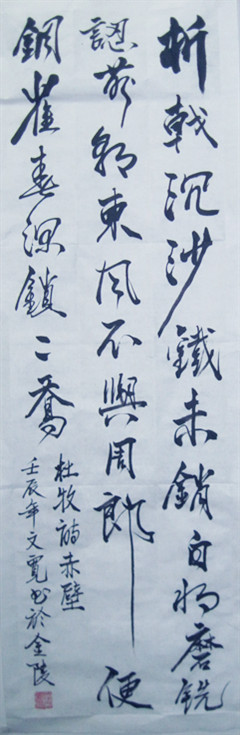 折戟沉沙鐵未銷自将磨銑
認前朝東風不與周郎便
銅雀春深鎖二喬
杜牧詩赤壁
壬辰年文寬书於金陵